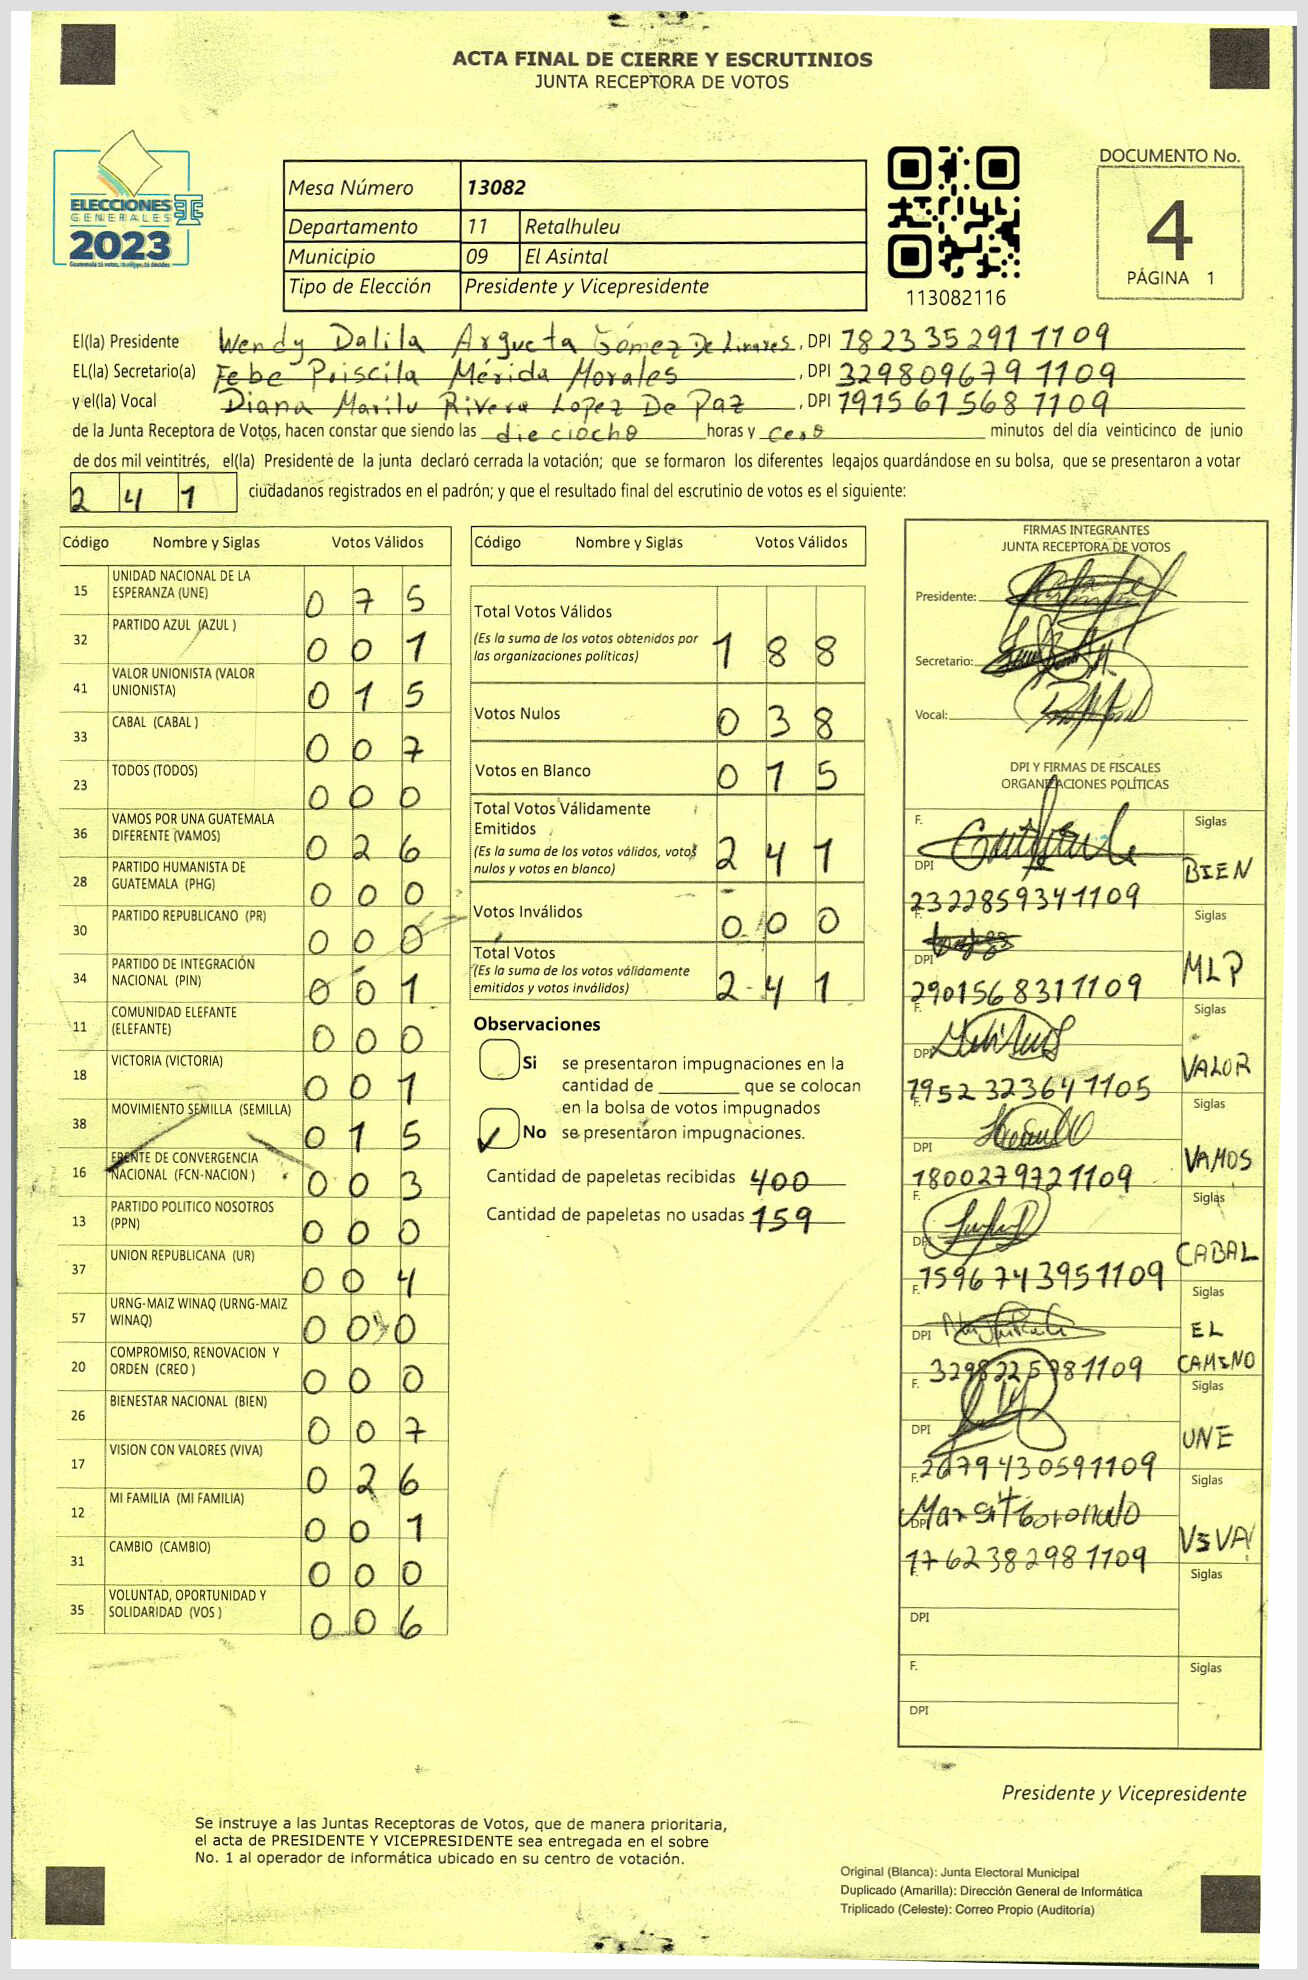 ACTA FINAL DE CIERRE Y ESCRUTINIOS
JUNTA RECEPTORA DE VOTOS
ELECCIONES
GENERALES
2023
Mesa Número 13082
Departamento 11 Retalhuleu
Municipio 09 El Asintal
Tipo de Elección Presidente y Vicepresidente
113082116
DOCUMENTO No.
4
PÁGINA 1
El(la) Presidente Wendy Dalila Argueta Gómez De Linares, DPI 7823352911109
EL(la) Secretario(a) Febe Priscila Mérida Morales, DPI 3298096791109
y el(la) Vocal Diana Marilu Rivera Lopez De Paz, DPI 1915615681109
de la Junta Receptora de Votos, hacen constar que siendo las dieciocho horas y cero minutos del día veinticinco de junio
de dos mil veintitrés, el(la) Presidente de la junta declaró cerrada la votación; que se formaron los diferentes legajos guardándose en su bolsa, que se presentaron a votar
241 ciudadanos registrados en el padrón; y que el resultado final del escrutinio de votos es el siguiente:
Código Nombre y Siglas Votos Válidos
15 UNIDAD NACIONAL DE LA ESPERANZA (UNE) 075
32 PARTIDO AZUL (AZUL ) 001
41 VALOR UNIONISTA (VALOR UNIONISTA) 015
33 CABAL (CABAL ) 007
23 TODOS (TODOS) 000
36 VAMOS POR UNA GUATEMALA DIFERENTE (VAMOS) 026
28 PARTIDO HUMANISTA DE GUATEMALA (PHG) 000
30 PARTIDO REPUBLICANO (PR) 000
34 PARTIDO DE INTEGRACIÓN NACIONAL (PIN) 001
11 COMUNIDAD ELEFANTE (ELEFANTE) 000
18 VICTORIA (VICTORIA) 001
38 MOVIMIENTO SEMILLA (SEMILLA) 015
16 FRENTE DE CONVERGENCIA NACIONAL (FCN-NACION ) 003
13 PARTIDO POLITICO NOSOTROS (PPN) 000
37 UNION REPUBLICANA (UR) 004
57 URNG-MAIZ WINAQ (URNG-MAIZ WINAQ) 000
20 COMPROMISO, RENOVACION Y ORDEN (CREO ) 000
26 BIENESTAR NACIONAL (BIEN) 007
17 VISION CON VALORES (VIVA) 026
12 MI FAMILIA (MI FAMILIA) 001
31 CAMBIO (CAMBIO) 000
35 VOLUNTAD, OPORTUNIDAD Y SOLIDARIDAD (VOS ) 006
Código Nombre y Siglas Votos Válidos
Total Votos Válidos
(Es la suma de los votos obtenidos por
las organizaciones políticas) 188
Votos Nulos 038
Votos en Blanco 015
Total Votos Válidamente
Emitidos
(Es la suma de los votos válidos, votos
nulos y votos en blanco) 241
Votos Inválidos 000
Total Votos
(Es la suma de los votos válidamente
emitidos y votos inválidos) 241
Observaciones
Si se presentaron impugnaciones en la
cantidad de ________ que se colocan
en la bolsa de votos impugnados
No se presentaron impugnaciones.
Cantidad de papeletas recibidas 400
Cantidad de papeletas no usadas 159
FIRMAS INTEGRANTES
JUNTA RECEPTORA DE VOTOS
Presidente:
Secretario:
Vocal:
DPI Y FIRMAS DE FISCALES
ORGANIZACIONES POLÍTICAS
F. Siglas
DPI 2322859341109 BIEN
F. Siglas
DPI 2901568311109 MLP
F. Siglas
DPI 1952323641105 VALOR
F. Siglas
DPI 1800279721109 VAMOS
F. Siglas
DPI 1596743951109 CABAL
F. Siglas
DPI EL CAMINO
F. Siglas
DPI 2679430591109 UNE
F. Siglas
DPI 1762382981109 VIVA
F. Siglas
DPI
F. Siglas
DPI
Presidente y Vicepresidente
Se instruye a las Juntas Receptoras de Votos, que de manera prioritaria,
el acta de PRESIDENTE Y VICEPRESIDENTE sea entregada en el sobre
No. 1 al operador de informática ubicado en su centro de votación.
Original (Blanca): Junta Electoral Municipal
Duplicado (Amarilla): Dirección General de Informática
Triplicado (Celeste): Correo Propio (Auditoría)